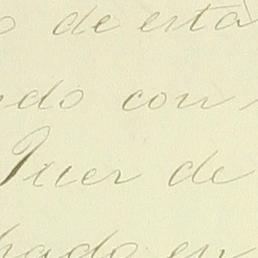 de està
ndo con
Juer de
hado en